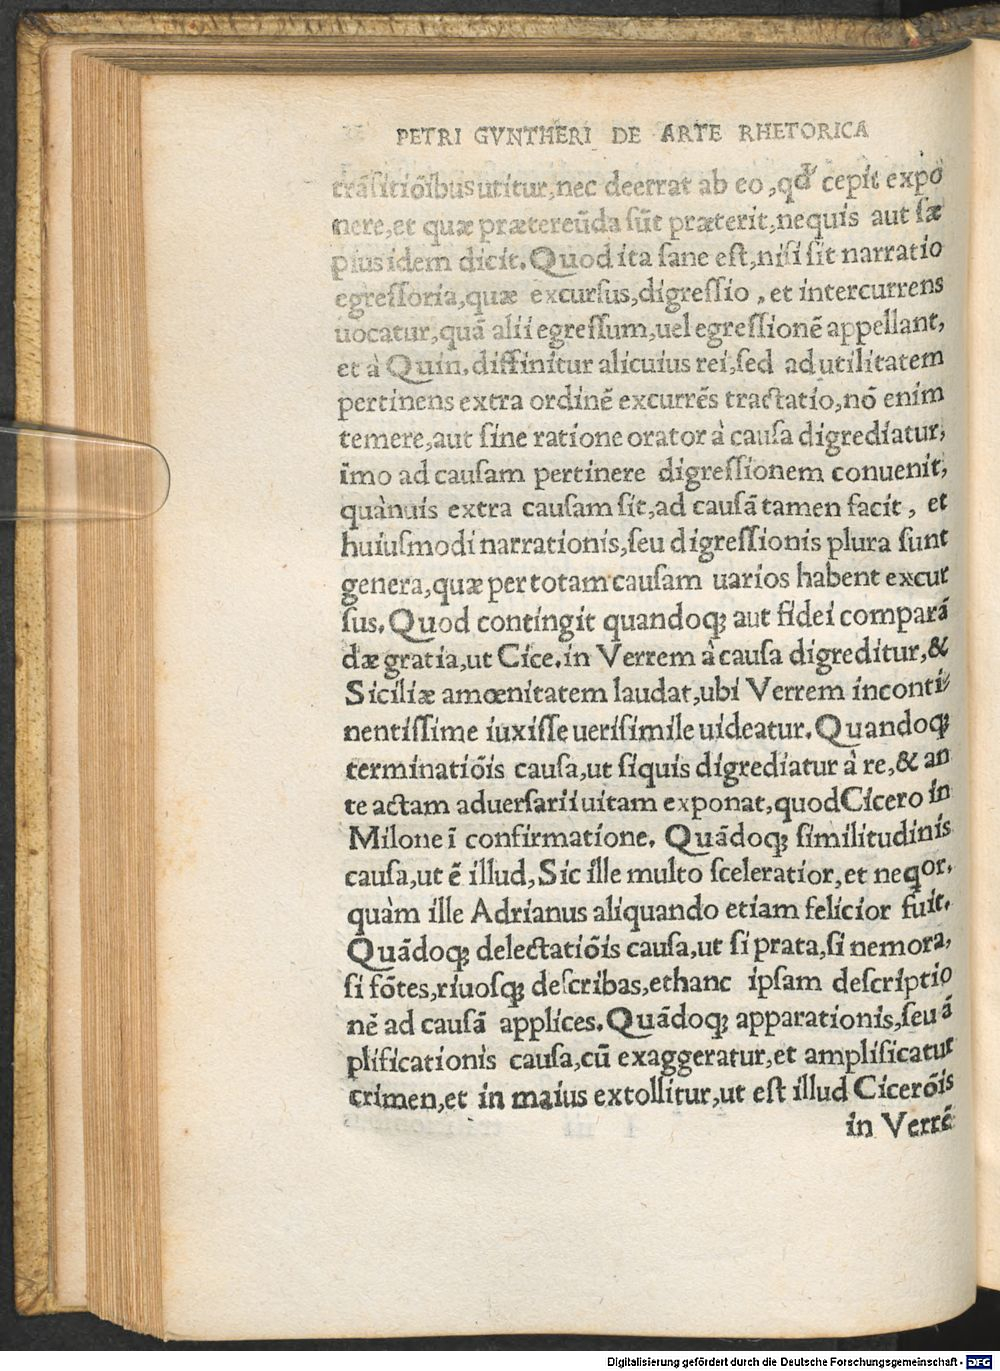 PETRI GVNTHERI DE ARTE RHETORICA
trãſitiõibus utitur, nec deerrat ab eo, qđ cepit expo
nere, et quæ prætereũda ſũt præterit, nequis aut ſæ
pius idem dicit. Quod ita ſane eſt, niſi ſit narratio
egreſſoria, quæ excurſus, digreſſio, et intercurrens
uocatur, quã alii egreſſum, uel egreſſionẽ appellant,
et à Quin. diffinitur alicuius rei, ſed ad utilitatem
pertinens extra ordinẽ excurrẽs tractatio, nõ enim
temere, aut ſine ratione orator à cauſa digrediatur,
ĩmo ad cauſam pertinere digreſſionem conuenit,
quànuis extra cauſam ſit, ad cauſã tamen facit, et
huiuſmodi narrationis, ſeu digreſſionis plura ſunt
genera, quæ per totam cauſam uarios habent excur
ſus. Quod contingit quandoq; aut fidei comparã
dæ gratia, ut Cice. in Verrem à cauſa digreditur, &
Siciliæ amœnitatem laudat, ubi Verrem inconti-
nentiſſime iuxiſſe ueriſimile uideatur. Quandoq;
terminatiõis cauſa, ut ſiquis digrediatur à re, & an
te actam aduerſarii uitam exponat, quod Cicero in
Milone ĩ confirmatione. Quãdoq; ſimilitudinis
cauſa, ut ẽ illud, Sic ille multo ſceleratior, et neqor.
quàm ille Adrianus aliquando etiam felicior fuit.
Quãdoq; delectatiõis cauſa, ut ſi prata, ſi nemora,
ſi fõtes, riuoſq; deſcribas, et hanc ipſam deſcriptio
nẽ ad cauſã applices. Quãdoq; apparationis, ſeu ã
plificationis cauſa, cũ exaggeratur, et amplificatur
crimen, et in maius extollitur, ut eſt illud Cicerõis
in Verrẽ
Digitalisierung gefördert durch die Deutsche Forschungsgemeinschaft - DFG